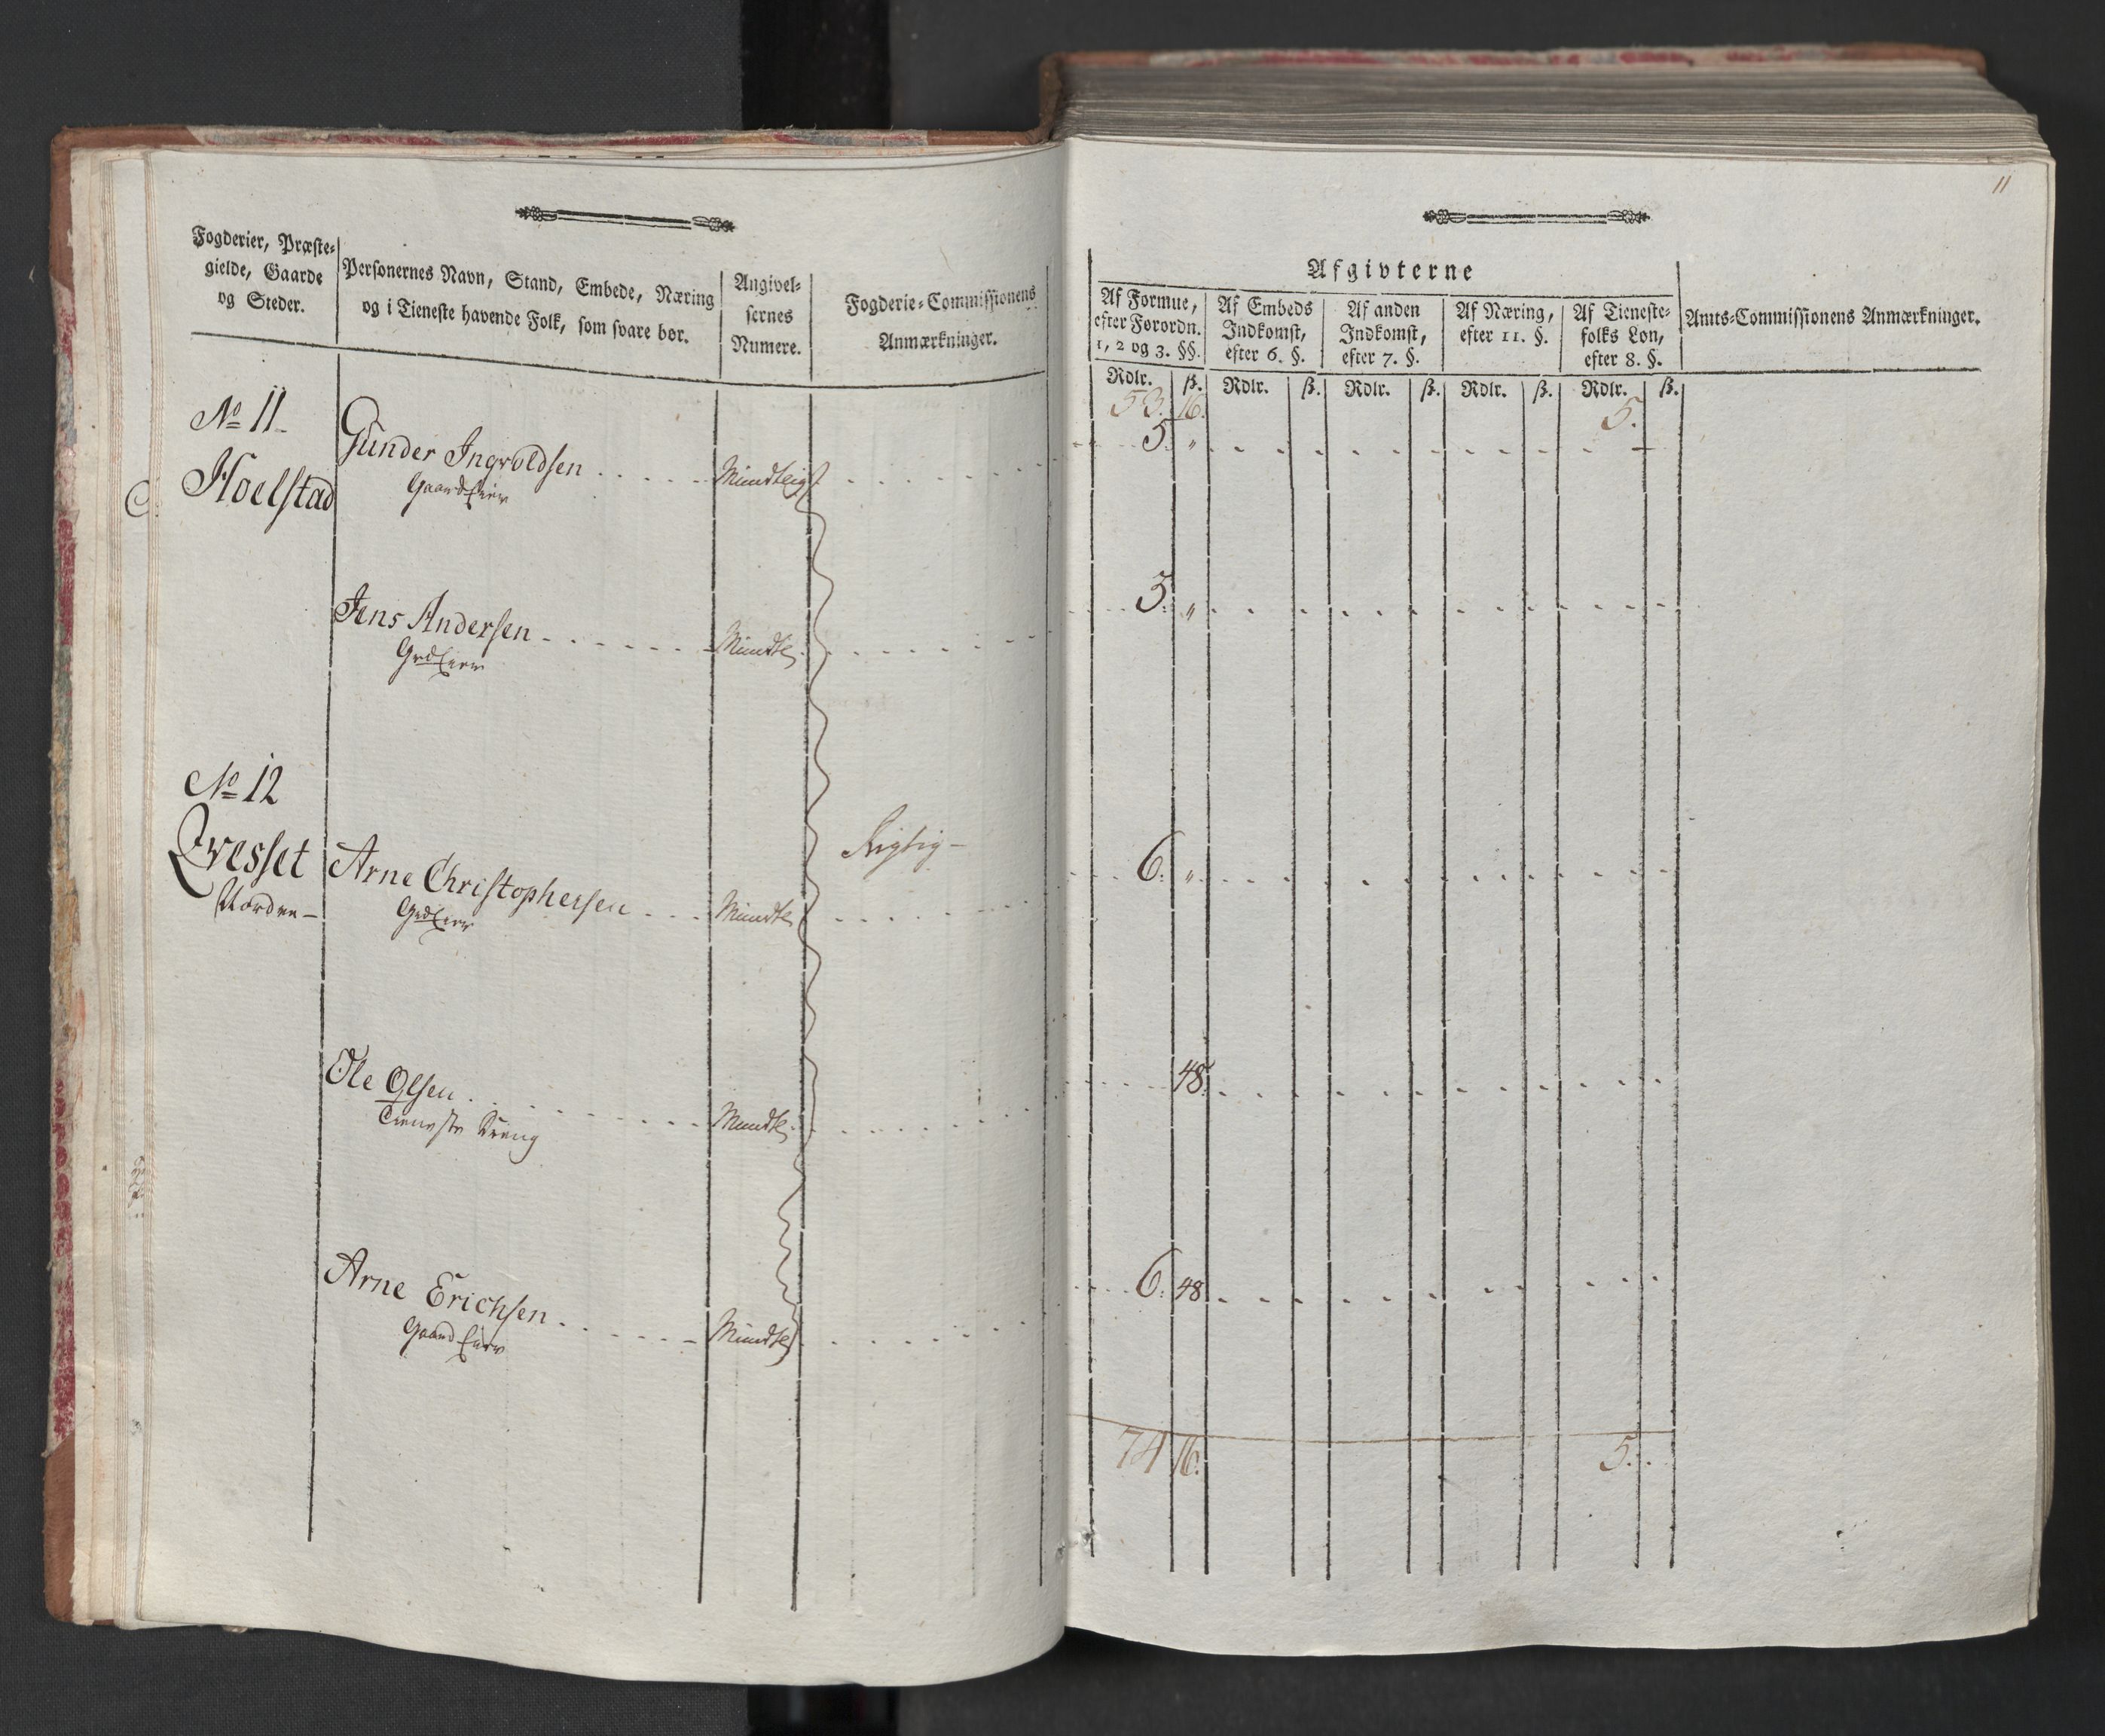 Fogderier, Præste-
gielde, Gaarde
og Steder.
Personernes Navn, Stand, Embede, Næring
og i Tieneste havende Folk, som svare bør.
Angivel-
sernes
Numere.
Fogderie-Commissionens
Anmærkninger.
No 11
Hoelstad
Gunder Ingvoldsen
Mundtligt
GaardEier
Jens Andersen
Mundtl
GrdEier
No 12
Qvesset
Nordre
Arne Christophersen
Mundtl
Rigtig
GrdEier
Ole Olsen
Mundtl
Tieneste Dreng
Arne Erichsen
Mundtl
Gaard Eier
11
Afgivterne
Af Formue,
efter Forordn.
1, 2 og 3. §§.
Af Embeds
Indkomst,
efter 6. §.
Af anden
Indkomst,
efter 7. §.
Af Næring,
efter 11. §.
Af Tieneste-
folks Løn,
efter 8. §.
Amts-Commissionens Anmærkninger.
Rdlr. ß. Rdlr. ß. Rdlr. ß. Rdlr. ß. Rdlr. ß.
53. 16. 5.
5. "
3. "
6. "
48.
6. 48
74 16. 5.